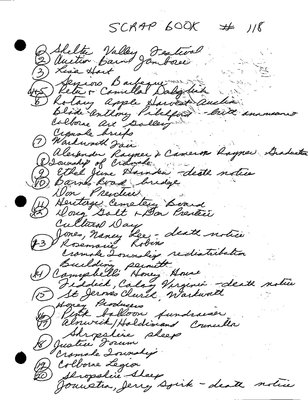 SCRAP BOOK # 118
1 Shelter Valley Festival
2 Auction Barn Jamboree
3 Lisa Hart
Seniors Banquet
4+5 Peter & Camilla Dalglish
6 Rotary Apple Harvest Auction
Blide Anthony Pitchford - birth announcement
Colborne Art Gallery
Cramahe briefs
7 Warkworth Fair
Alexandra Rayner & Cameron Rayner Graduation
8 Township of Cramahe
9 Ethel June Harnden - death notice
10 Barnes Road bridge
Don Prentice
11 Heritage Cemetery Board
12 Doug Galt & Don Prentice
Cultural Day
Jones, Nancy Lee - death notice
13 Rosemarie Robin
Cramahe Township redistribution
Building permits
14 Campbell's Honey House
Fiddick, Calay Virginia - death notice
15 St. Jeromes Church, Warkworth
Honey Producers
16 Pink balloon fundraiser
17 Alnwick/Haldimand Councillor
Shropshire sheep
18 Justice Forum
Cramahe Township
19 Colborne Legion
20 Shropshire Sheep
Jonustra, Jerry Sjirk - death notice